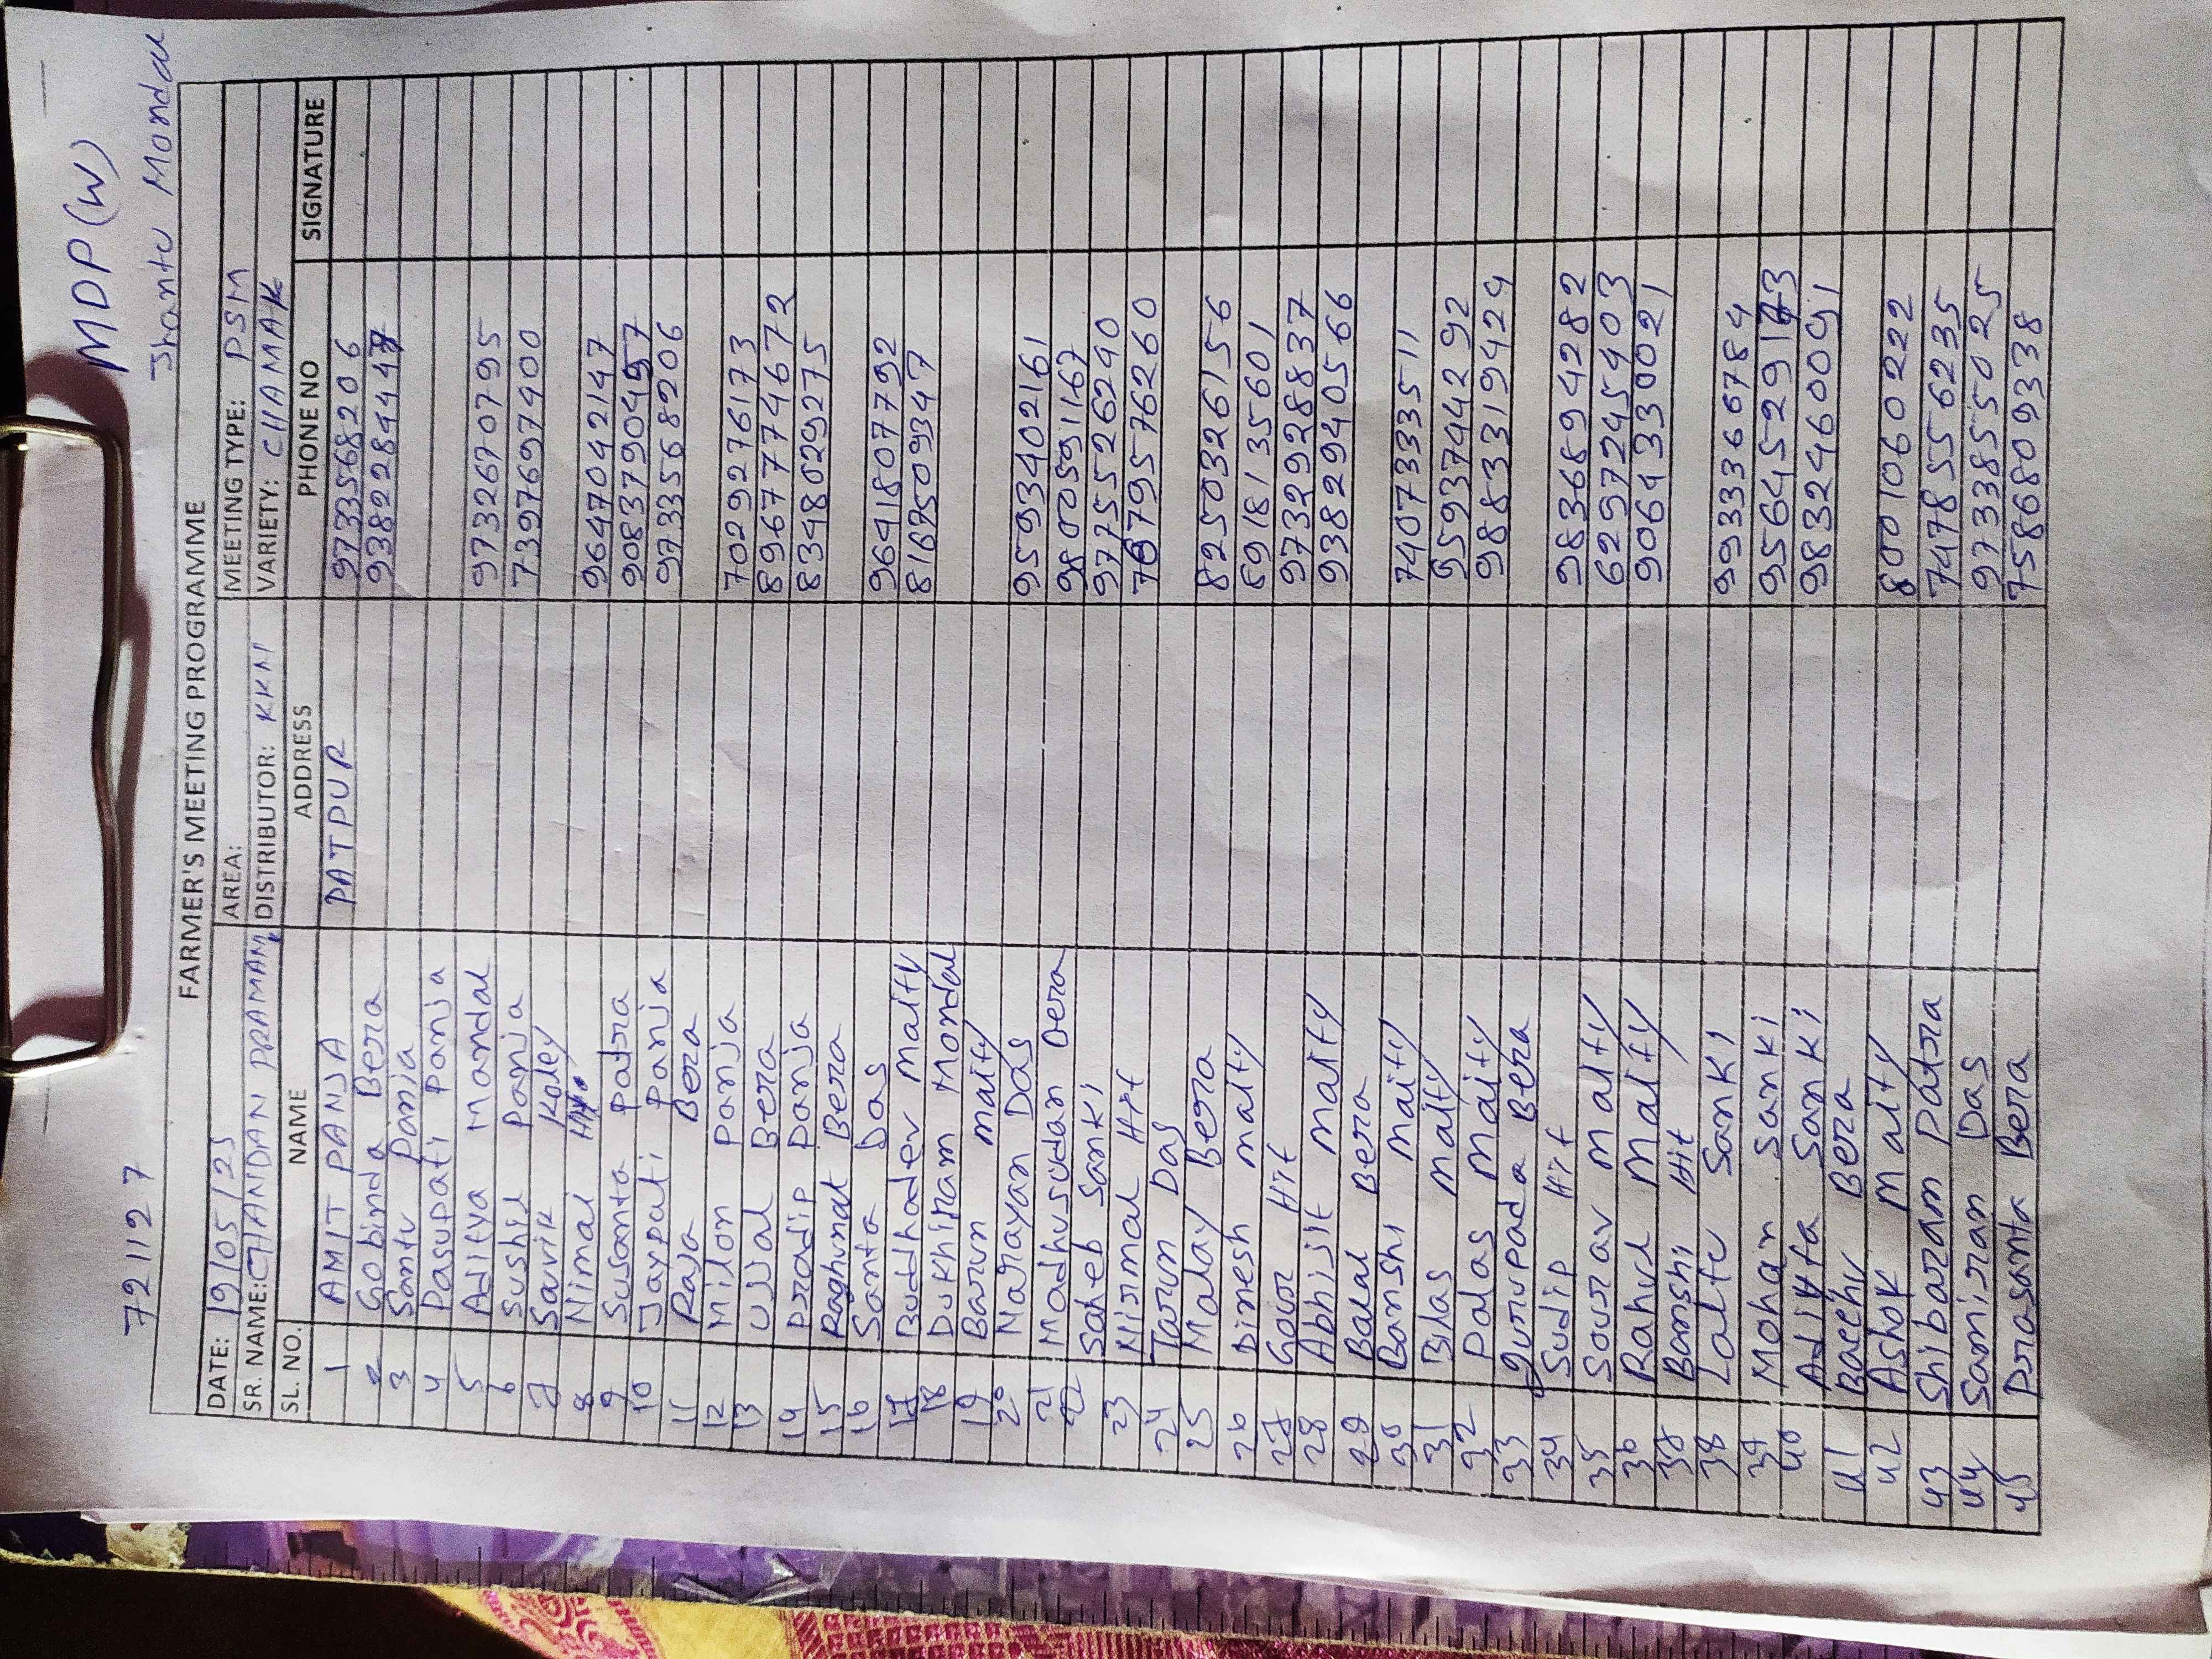 721127
MDP(W)
Jhantu Mondal
FARMER'S MEETING PROGRAMME
DATE: 19/05/25 AREA: MEETING TYPE: PSM
SR. NAME: CHANDAN PRAMANI DISTRIBUTOR: KKM VARIETY: CHAMAK
SL. NO. NAME ADDRESS PHONE NO SIGNATURE
1 AMIT PANJA PATPUR 9733568206
2 Gobinda Bera 9382284447
3 Santu Panja
4 Pasupati Panja
5 Aditya Mandal 9732670795
6 Sushil Panja 7397697400
7 Sauvik Koley
8 Nimai Hit 9647042147
9 Susanta Patra 9083790497
10 Jaypati Panja 9733568206
11 Raja Bera
12 Milon Panja 7029276173
13 Ujjal Bera 8967774672
14 Pradip Panja 8348029275
15 Raghunat Bera
16 Santa Das 9641807792
17 Buddhadev Maity 8167509347
18 Dukhiram Mondal
19 Barun Maity
20 Narayan Das 9593402161
21 Madhusudan Bera 9800591167
22 Saheb Sanki 9775526240
23 Nirmal Hit 7679576260
24 Tarun Das
25 Malay Bera 8250326156
26 Dinesh Maity 8918135601
27 Gour Hit 9732928837
28 Abhijit Maity 9382940566
29 Balai Bera
30 Banshi Maity 7407333511
31 Bilas Maity 9593744292
32 Palas Maity 9883319424
33 Gurupada Bera
34 Sudip Hit 9836894282
35 Sourav Maity 6297245403
36 Rahul Maity 9064330021
38 Banshi Hit
38 Laltu Sanki 9933366784
39 Mohan Sanki 9564529173
40 Aditta Sanki 9832460091
41 Bacchu Bera
42 Ashok Maity 8001060222
43 Shibaram Patra 7478556235
44 Samiran Das 9733855025
45 Prasanta Bera 7586809338